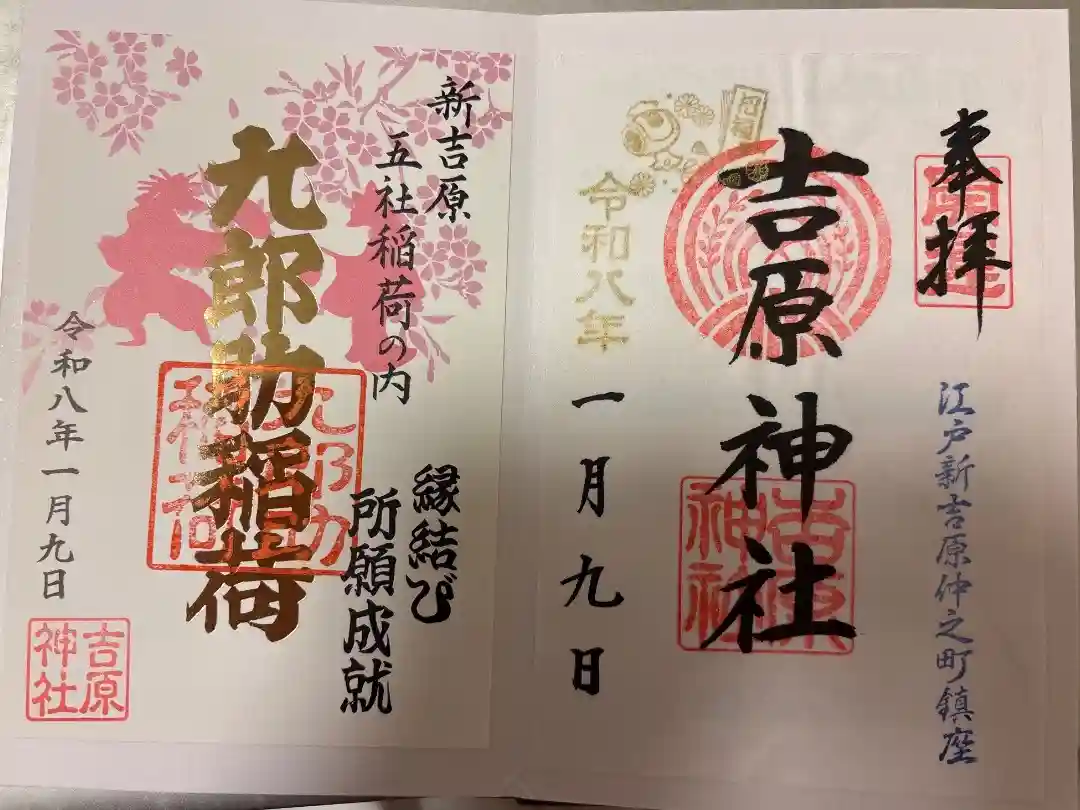 奉拝
江戸新吉原仲之町鎮座
吉原神社
吉原神社
令和八年
一月九日
新吉原
五社稲荷の内
縁結び
所願成就
九郎助稲荷
九郎助稲荷
令和八年一月九日
吉原
神社